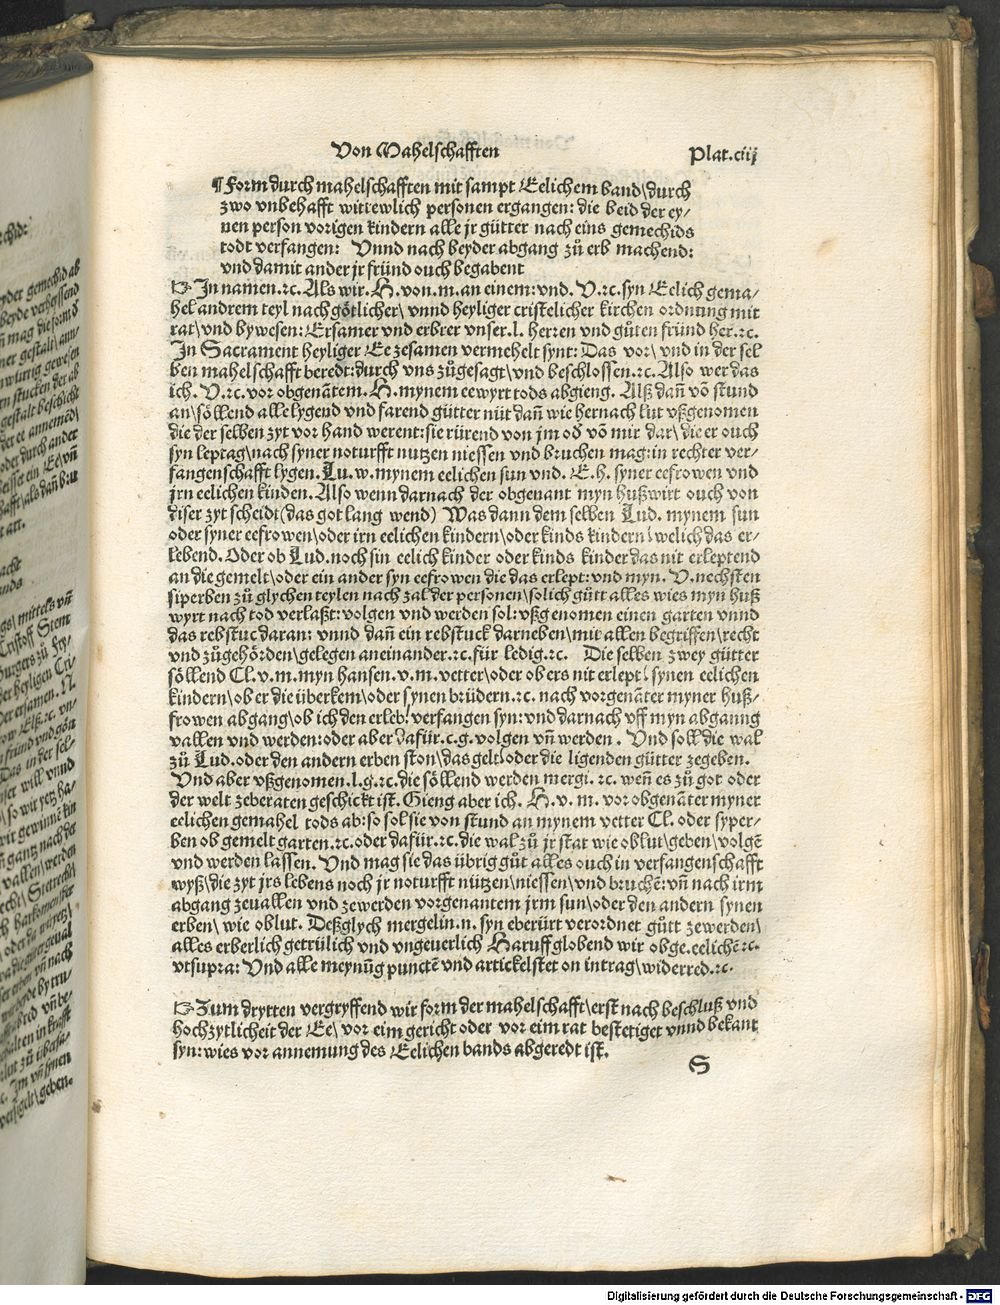 Von Mahelschafften
Plat.ciij
¶ Form durch mahelschafften mit sampt Eelichem band/durch
zwo vnbehafft wittewlich personen ergangen: die beid der ey-
nen person vorigen kindern alle jr gütter nach eins gemechids
todt verfangen: Vnnd nach beyder abgang zů erb machend:
vnd damit ander jr fründ ouch begabent
☞ In namen.ꝛc. Als wir. H. von. m. an einem: vnd. V. ꝛc. syn Eelich gema-
hel andrem teyl nach götlicher\ vnnd heyliger cristelicher kirchen ordnung mit
rat\ vnd bywesen: Ersamer vnd erbrer vnser. l. herren vnd gůten fründ her. ꝛc.
In Sacrament heyliger Ee zesamen vermehelt synt: Das vor\ vnd in der sel
ben mahelschafft beredt: durch vns zůgesagt\ vnd beschlossen. ꝛc. Also wer das
ich. V. ꝛc. vor obgenātem. H. mynem eewyrt tods abgieng. Alß dañ võ stund
an\ söllend alle lygend vnd farend gütter nüt dañ wie hernach lut vßgenomen
die der selben zyt vor hand werent: sie rürend von jm oď võ mir dar\ die er ouch
syn leptag\ nach syner noturfft nutzen niessen vnd bruchen mag: in rechter ver-
fangenschafft lygen. Lu. w. mynem eelichen sun vnd. E. h. syner eefrowen vnd
jrn eelichen kinden. Also wenn darnach der obgenant myn hußwirt ouch von
diser zyt scheidt (das got lang wend) Was dann dem selben Lud. mynem sun
oder syner eefrowen\ oder irn eelichen kindern\ oder kinds kindern\ welich das er-
lebend. Oder ob Lud. noch sin eelich kinder oder kinds kinder das nit erleptend
an die gemelt\ oder ein ander syn eefrowen die das erlept: vnd myn. V. nechsten
siperben zů glychen teylen nach zal der personen\ solich gůtt alles wies myn huß
wyrt nach tod verlaßt: volgen vnd werden sol: vßgenomen einen garten vnnd
das rebstuc daran: vnnd dañ ein rebstuck darneben\ mit allen begriffen\ recht
vnd zůgehörden\ gelegen aneinander. ꝛc. für ledig. ꝛc. Die selben zwey gütter
söllend Cl. v. m. myn hansen. v. m. vetter\ oder ob ers nit erlept\ synen eelichen
kindern\ ob er die überkem\ oder synen brüdern. ꝛc. nach vorgenāter myner huß-
frowen abgang\ ob ich den erleb\ verfangen syn: vnd darnach vff myn abganng
vallen vnd werden: oder aber dafür. c. g. volgen vñ werden. Vnd soll die wal
zů Lud. oder den andern erben ston\ das gelt\ oder die ligenden gütter zegeben.
Vnd aber vßgenomen. l. g. ꝛc. die söllend werden mergi. ꝛc. weñ es zů got oder
der welt zeberaten geschickt ist. Gieng aber ich. H. v. m. vor obgenāter myner
eelichen gemahel tods ab: so sol sie von stund an mynem vetter Cl. oder syper-
ben ob gemelt garten. ꝛc. oder dafür. ꝛc. die wal zů jr stat wie oblut\ geben\ volgē
vnd werden lassen. Vnd mag sie das übrig gůt alles ouch in verfangenschafft
wyß\ die zyt jrs lebens noch jr noturfft nützen\ niessen\ vnd bruchē: vñ nach irm
abgang zeuallen vnd zewerden vorgenantem jrm sun\ oder den andern synen
erben\ wie oblut. Deßglych mergelin. n. syn eberürt verordnet gůtt zewerden\
alles erberlich getrülich vnd vngeuerlich Haruff globend wir obge. eelichē ꝛc.
vtsupra: Vnd alle meynũg punctē vnd artickel stet on intrag\ widerred. ꝛc.
☞ Zum drytten vergryffend wir form der mahelschafft\ erst nach beschluß vnd
hochzytlicheit der Ee\ vor eim gericht oder vor eim rat bestetiget vnnd bekant
syn: wies vor annemung des Eelichen bands abgeredt ist.
S
Digitalisierung gefördert durch die Deutsche Forschungsgemeinschaft - DFG